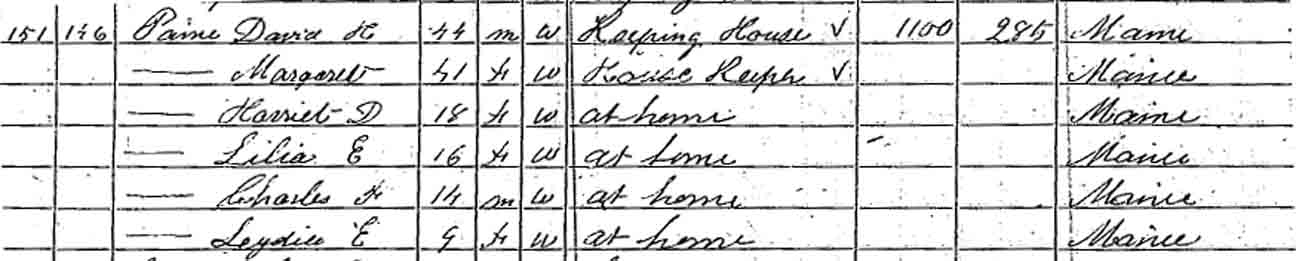 151 146 Paine David H 44 m W Keeping House √ 1100 285 Maine
—— Margaret 41 f W House Keeper √ Maine
—— Harriet D 18 f W at home Maine
—— Lilia E 16 f W at home Maine
—— Charles F 14 m W at home Maine
—— Leydia E 9 f W at home Maine